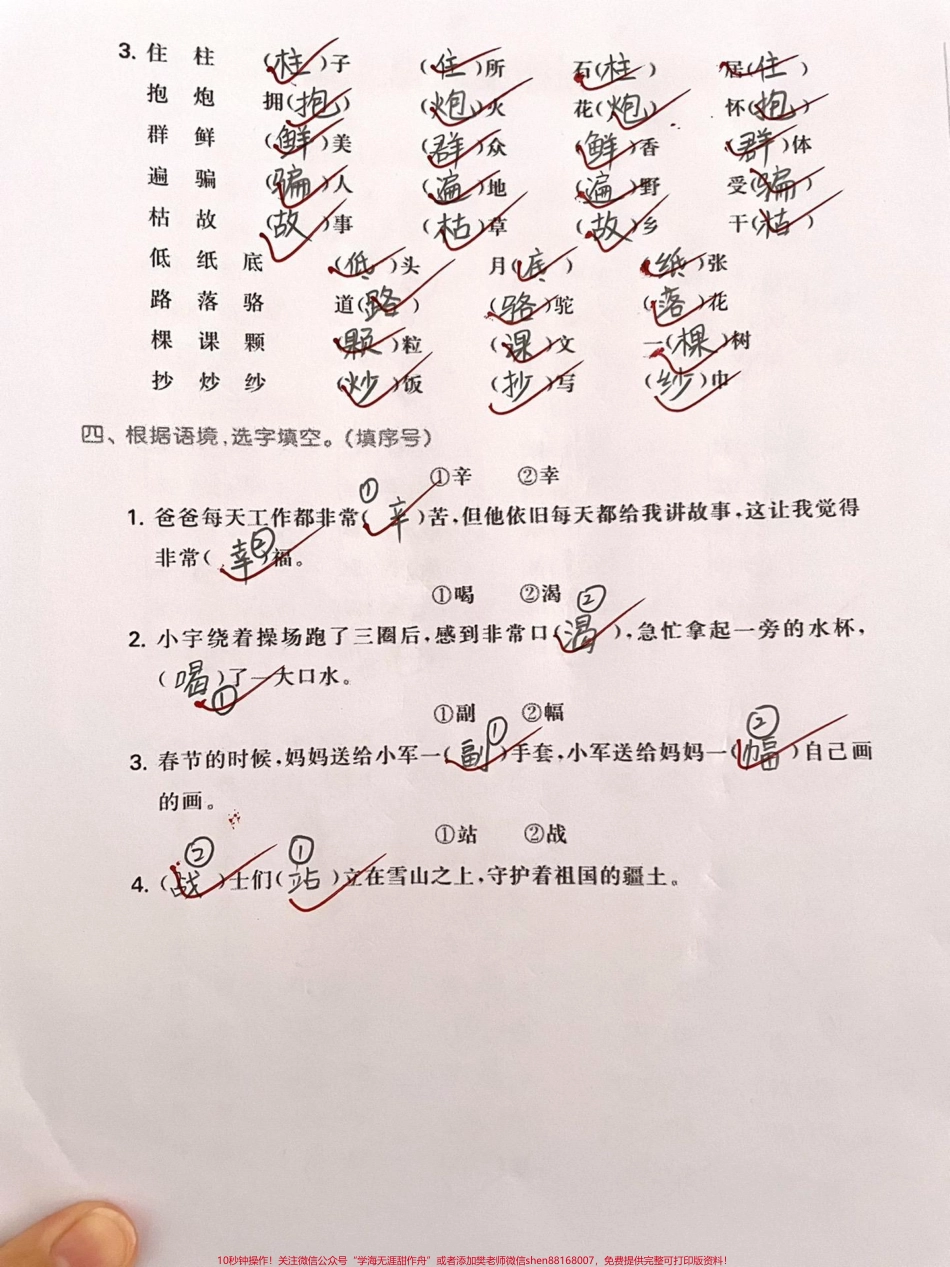 3. 住 柱 (柱)子 (住)所 石(柱) 居(住)
抱 炮 拥(抱) (炮)火 花(炮) 怀(抱)
群 鲜 (鲜)美 (群)众 (鲜)香 (群)体
遍 骗 (骗)人 (遍)地 (遍)野 受(骗)
枯 故 (故)事 (枯)草 (故)乡 干(枯)
低 纸 底 (低)头 月(底) (纸)张
路 落 骆 道(路) (骆)驼 (落)花
棵 课 颗 (颗)粒 (课)文 一(棵)树
抄 炒 纱 (炒)饭 (抄)写 (纱)巾
四、根据语境,选字填空。(填序号)
①辛 ②幸
①
1. 爸爸每天工作都非常(辛)苦,但他依旧每天都给我讲故事,这让我觉得
非常(幸②)福。
①喝 ②渴
②
2. 小宇绕着操场跑了三圈后,感到非常口(渴),急忙拿起一旁的水杯,
(喝)了一大口水。
①
①副 ②幅
① ②
3. 春节的时候,妈妈送给小军一(副)手套,小军送给妈妈一(幅)自己画
的画。
①站 ②战
② ①
4. (战)士们(站)立在雪山之上,守护着祖国的疆土。
10秒钟操作！关注微信公众号“学海无涯甜作舟”或者添加樊老师微信shen88168007，免费提供完整可打印版资料！